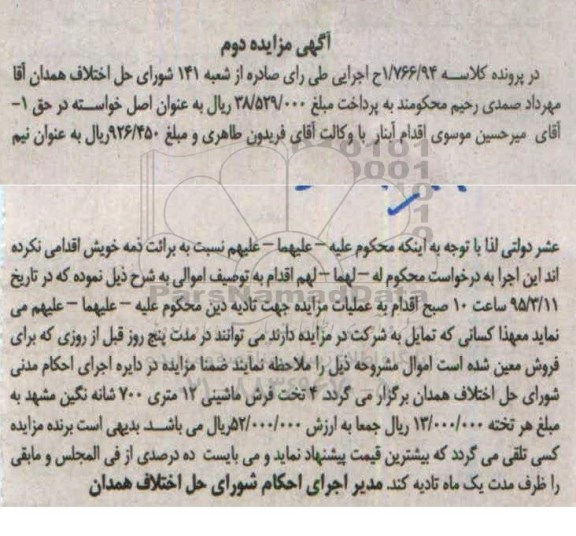 آگهی مزایده دوم
در پرونده کلاسه ۱/۷۶۶/۹۴ح اجرایی طی رای صادره از شعبه ۱۴۱ شورای حل اختلاف همدان آقا
مهرداد صمدی رحیم محکومند به پرداخت مبلغ ۳۸/۵۲۹/۰۰۰ ریال به عنوان اصل خواسته در حق ۱-
آقای میرحسین موسوی اقدام آبنار با وکالت آقای فریدون طاهری و مبلغ ۹۲۶/۴۵۰ریال به عنوان نیم
عشر دولتی لذا با توجه به اینکه محکوم علیه – علیهما – علیهم نسبت به برائت ذمه خویش اقدامی نکرده
اند این اجرا به درخواست محکوم له – لهما – لهم اقدام به توصیف اموالی به شرح ذیل نموده که در تاریخ
۹۵/۳/۱۱ ساعت ۱۰ صبح اقدام به عملیات مزایده جهت تادیه دین محکوم علیه – علیهما – علیهم می
نماید معهذا کسانی که تمایل به شرکت در مزایده دارند می توانند در مدت پنج روز قبل از روزی که برای
فروش معین شده است اموال مشروحه ذیل را ملاحظه نمایند ضمنا مزایده در دایره اجرای احکام مدنی
شورای حل اختلاف همدان برگزار می گردد. ۴ تخت فرش ماشینی ۱۲ متری ۷۰۰ شانه نگین مشهد به
مبلغ هر تخته ۱۳/۰۰۰/۰۰۰ ریال جمعا به ارزش ۵۲/۰۰۰/۰۰۰ریال می باشد. بدیهی است برنده مزایده
کسی تلقی می گردد که بیشترین قیمت پیشنهاد نماید و می بایست ده درصدی از فی المجلس و مابقی
را ظرف مدت یک ماه تادیه کند. مدیر اجرای احکام شورای حل اختلاف همدان
ParsNamadData